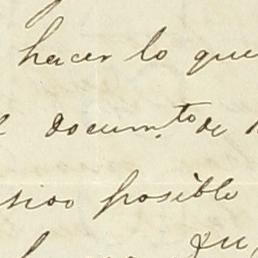 hacer lo que
docum.to de
sivo posible
su